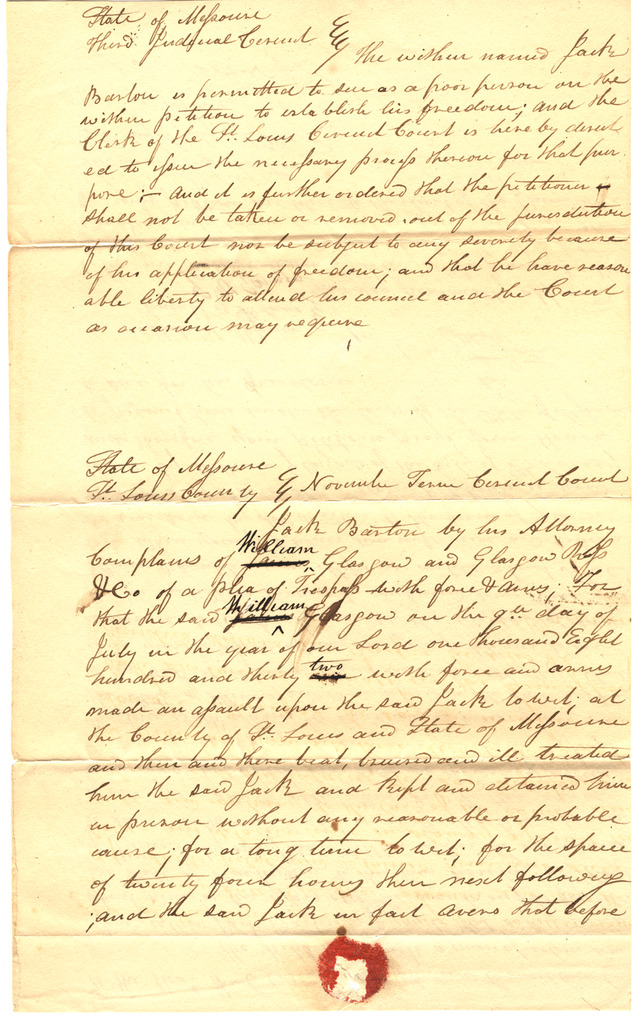 State of Missouri
Third Judicial Circuit
The within named Jack
Barton is permitted to sue as a poor person on the
within petition to establish his freedom; and the
Clerk of the St. Louis Circuit Court is hereby direct
ed to issue the necessary process thereon for that pur
pose; – And it is further ordered that the petitioner
shall not be taken or removed out of the jurisdiction
of this Court nor be subject to any severity because
of his application of freedom; and that he have reason
able liberty to attend his council and the Court
as occasion may require
State of Missouri
St. Louis County
November Term Circuit Court
Jack Barton by his Attorney
William
Complains of Glasgow and Glasgow Ross
& Co of a plea of Trespass with force & arms; For
William
that the said Glasgow on the 9th day of
July in the year of our Lord one thousand Eight
hundred and thirty two with force and arms
made an assault upon the said Jack to wit; at
the County of St. Louis and State of Missouri
and then and there beat, bruised and ill treated
him the said Jack and kept and detained him
in prison without any reasonable or probable
cause; for a long time to wit; for the space
of twenty four hours then next following
; and the said Jack in fact avers that before